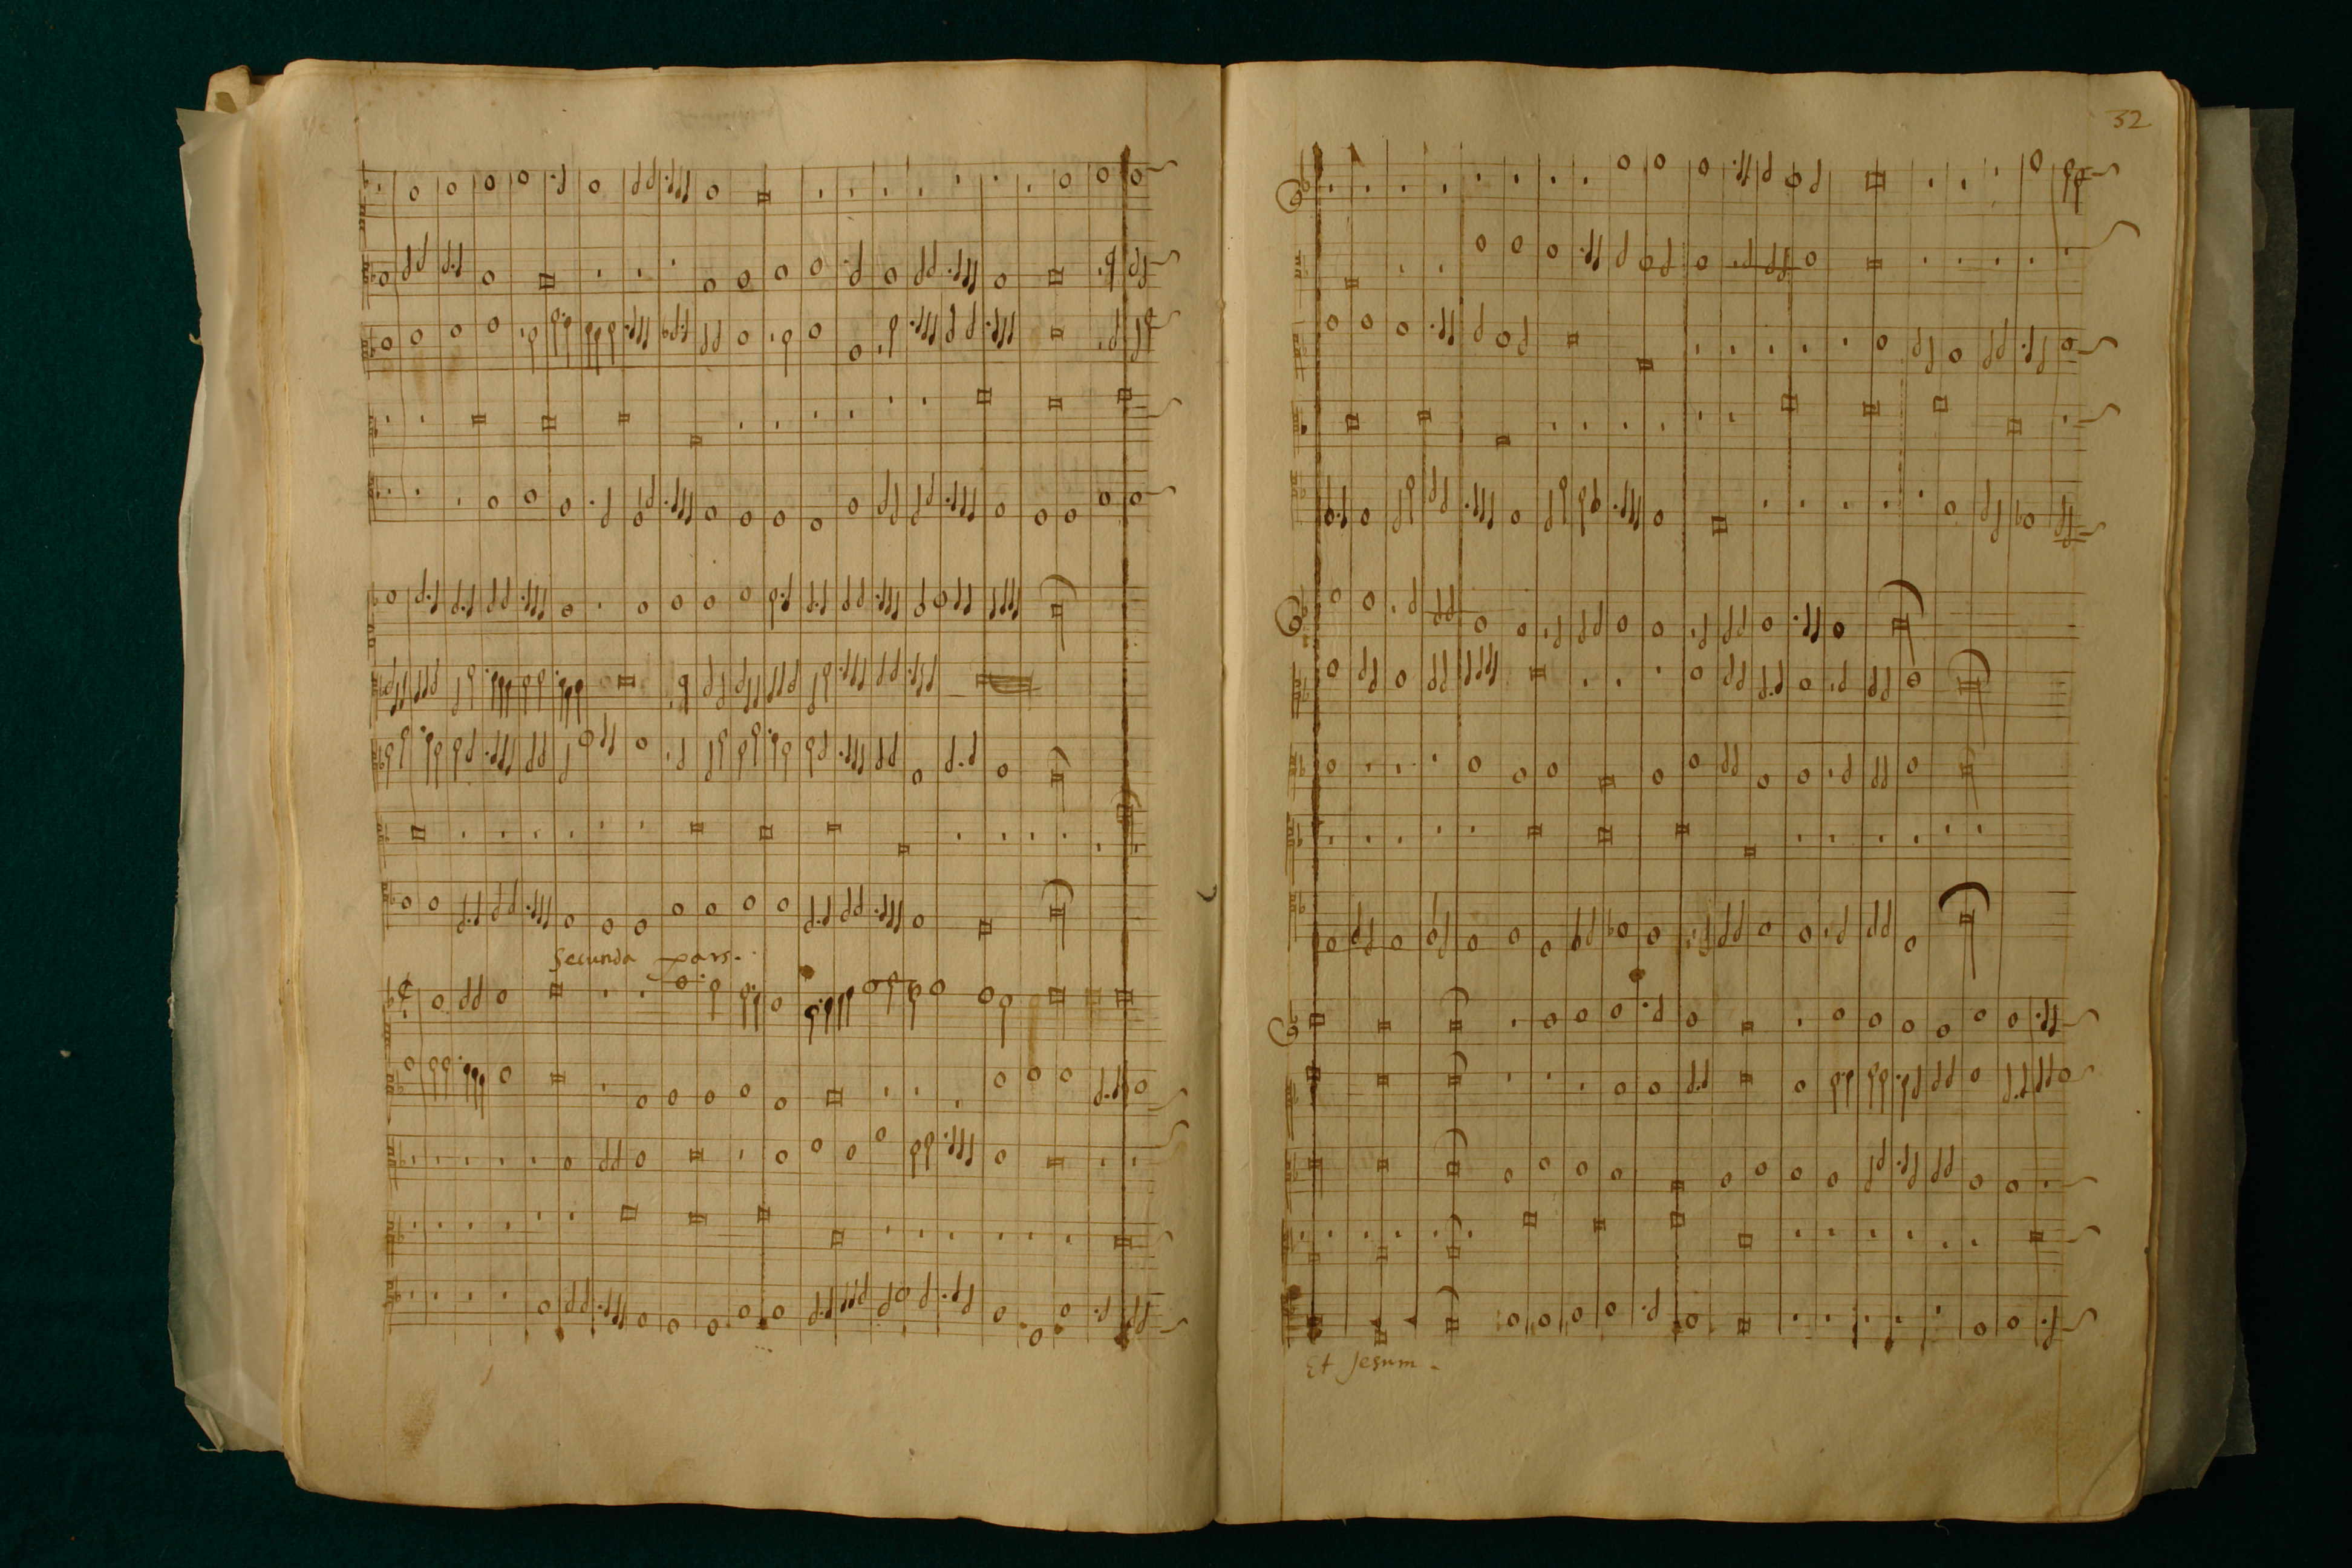 Secunda pars.
32
Et Jesum.